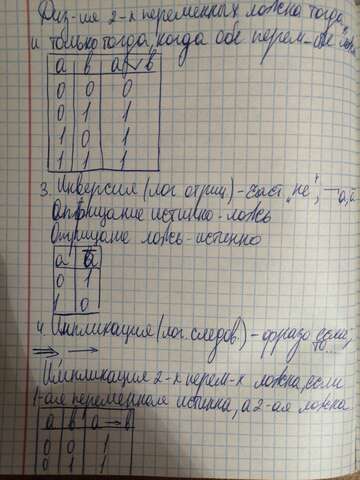 Диз-ия 2-х переменных ложна тогда
и только тогда, когда обе перем-ые
a b a∨b
0 0 0
0 1 1
1 0 1
1 1 1
3. Инверсия (лог. отриц) - част. "не", ¬a, ā
Отрицание истинно - ложь
Отрицание ложь - истинно
a ā
0 1
1 0
4. Импликация (лог. следов.) - фраза если,
⇒ → то...
Импликация 2-х перем-х ложна, если
1-ая переменная истинна, а 2-ая ложна
a b a→b
0 0 1
0 1 1